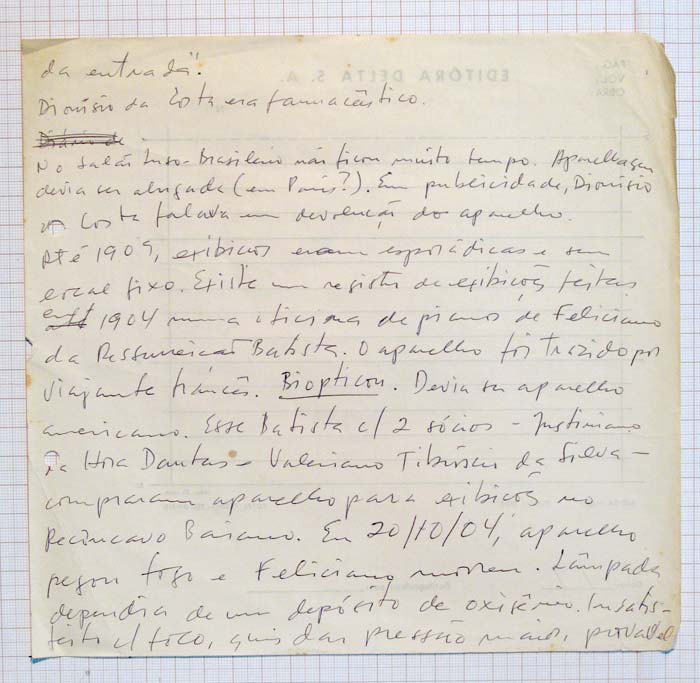 PAG.
VOL.
OBRA:
EDITÔRA DELTA S. A.
da entrada".
Dionísio da Costa era farmacêutico.
Diário de
No Salão Luso-Brasileiro não ficou muito tempo. Aparelhagem
devia ser alugada (em Paris?). Em publicidade, Dionísio
da Costa falava em devolução do aparelho.
Até 1909, exibições eram esporádicas e sem
local fixo. Existe um registro de exibições feitas
em 1904 numa oficina de pianos de Feliciano
da Ressurreição Batista. O aparelho foi trazido por
viajante francês. Biopticon. Devia ser aparelho
americano. Esse Batista c/ 2 sócios - Justiniano
da Hora Dantas e Valeriano Tibúrcio da Silva -
compraram aparelho para exibições no
Recôncavo Baiano. Em 20/10/04, aparelho
pegou fogo e Feliciano morreu. Lâmpada
dependia de um depósito de oxigênio. Insatis-
feito c/ foco, quis dar pressão maior,